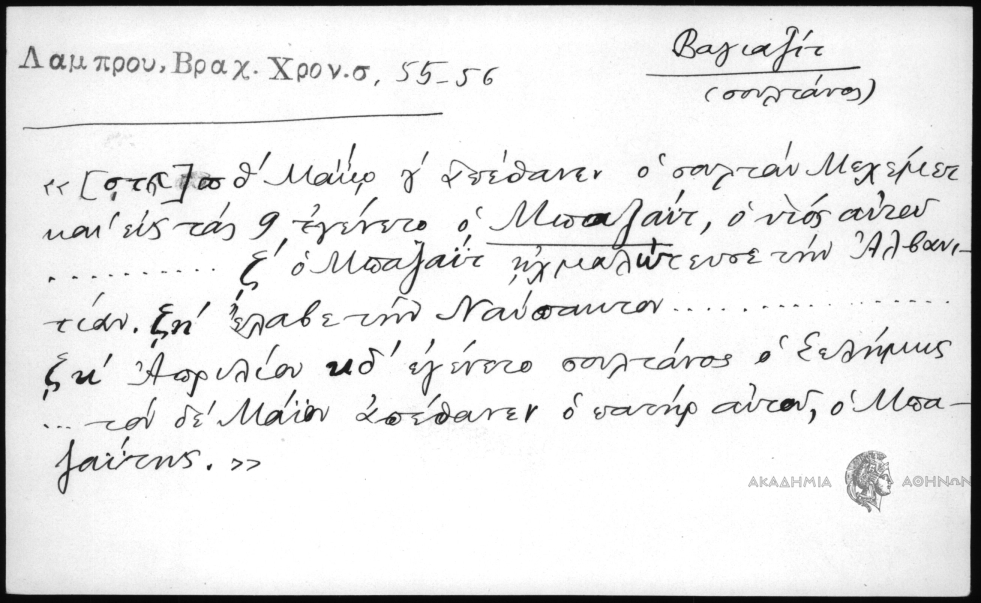 Λαμπρου, Βραχ. Χρον. σ. 55-56
Βαγιαζίτ
(σουλτάνος)
«[στϡ]πθ´ Μαΐῳ γ´ ἀπέθανεν ὁ σουλτὰν Μεχεμὲτ
καὶ εἰς τὰς 9 ἐγένετο ὁ Μπαζαΐτ, ὁ υἱός αὐτοῦ
........... ζ´ ὁ Μπαζαΐτ ᾐχμαλώτευσε τὴν Ἀλβανι-
τίαν. ζη´ ἔλαβε τὴν Ναύπακτον ..................
ζκ´ Ἀπριλίου κδ´ ἐγένετο σουλτάνος ὁ Σελήμης
... τὸν δὲ Μάϊον ἀπέθανεν ὁ πατὴρ αὐτοῦ, ὁ Μπα-
ζαΐτης.»
ΑΚΑΔΗΜΙΑ ΑΘΗΝΩΝ